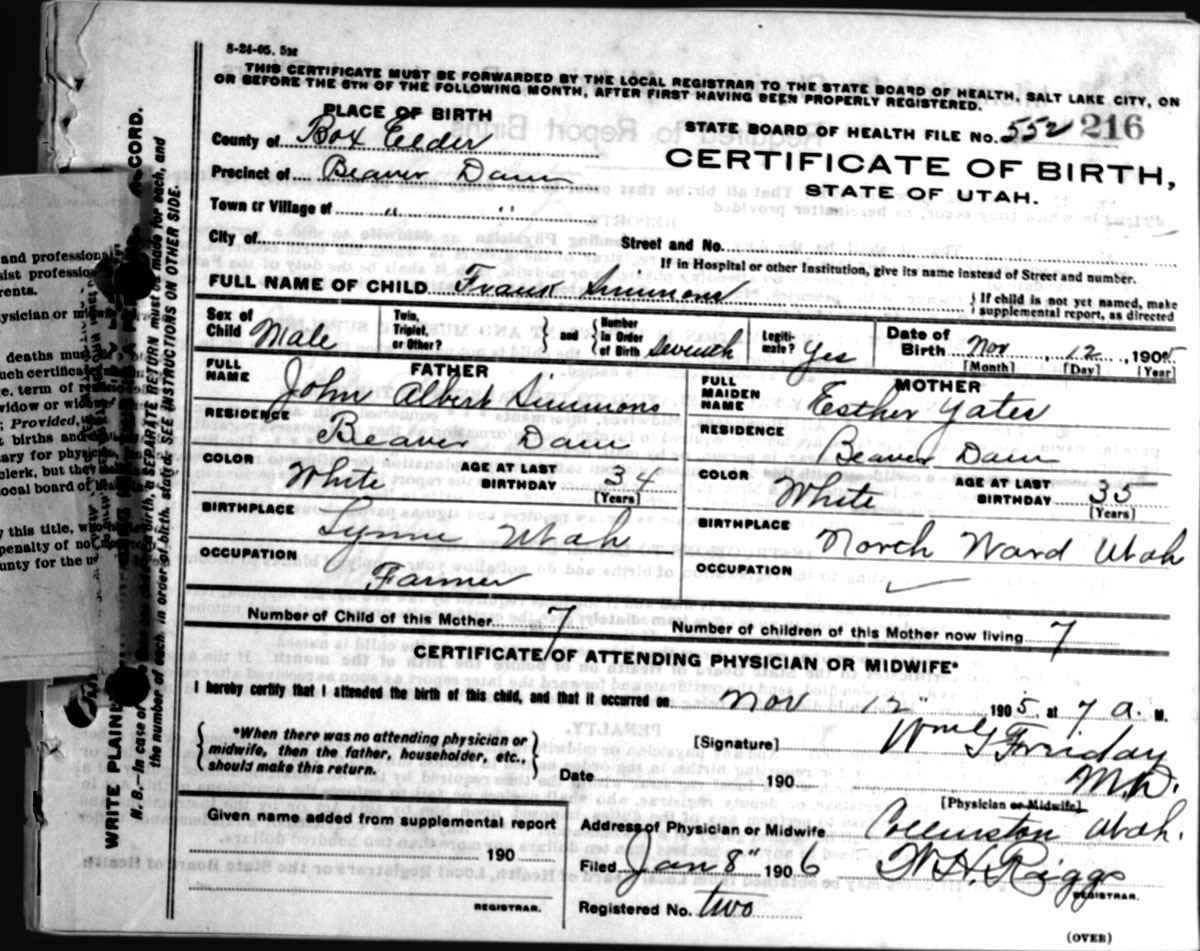 8-24-05. 5M
THIS CERTIFICATE MUST BE FORWARDED BY THE LOCAL REGISTRAR TO THE STATE BOARD OF HEALTH, SALT LAKE CITY, ON
OR BEFORE THE 5TH OF THE FOLLOWING MONTH, AFTER FIRST HAVING BEEN PROPERLY REGISTERED.
PLACE OF BIRTH
County of Box Elder
Precinct of Beaver Dam
Town or Village of " "
City of
STATE BOARD OF HEALTH FILE No. 552 216
CERTIFICATE OF BIRTH,
STATE OF UTAH.
Street and No.
If in Hospital or other Institution, give its name instead of Street and number.
FULL NAME OF CHILD Frank Simmons
} If child is not yet named, make
supplemental report, as directed
Sex of Child Male
Twin, Triplet, or Other?
} and {
Number in Order of Birth Seventh
Legiti-mate? Yes
Date of Birth Nov, 12, 1905
[Month] [Day] [Year]
FATHER
FULL NAME John Albert Simmons
RESIDENCE Beaver Dam
COLOR White AGE AT LAST BIRTHDAY 34
[Years]
BIRTHPLACE Lynne Utah
OCCUPATION Farmer
MOTHER
FULL MAIDEN NAME Esther Yates
RESIDENCE Beaver Dam
COLOR White AGE AT LAST BIRTHDAY 35
[Years]
BIRTHPLACE North Ward Utah
OCCUPATION
Number of Child of this Mother 7 Number of children of this Mother now living 7
CERTIFICATE OF ATTENDING PHYSICIAN OR MIDWIFE*
I hereby certify that I attended the birth of this child, and that it occurred on Nov 12" 1905, at 7 a. M.
{ *When there was no attending physician or
midwife, then the father, householder, etc.,
should make this return. }
[Signature] Wm G
M.D.
Date 190
[Physician or Midwife]
Given name added from supplemental report
190
REGISTRAR.
Address of Physician or Midwife Collinston Utah.
Filed Jan 8" 1906 W. H. Riggs
REGISTRAR.
Registered No. two
(OVER)
WRITE PLAINL
CORD.
N. B.—In case of a birth, a SEPARATE RETURN must be made for each, and
the number of each, in order of birth, stated. SEE INSTRUCTIONS ON OTHER SIDE.
and professional
sist profession
rents.
ysician or
deaths must
uch certificate
e, term of
widow or
; Provided,
births and
ary for physic
clerk, but they
ocal board of
y this title, w
penalty of no
unty for the u